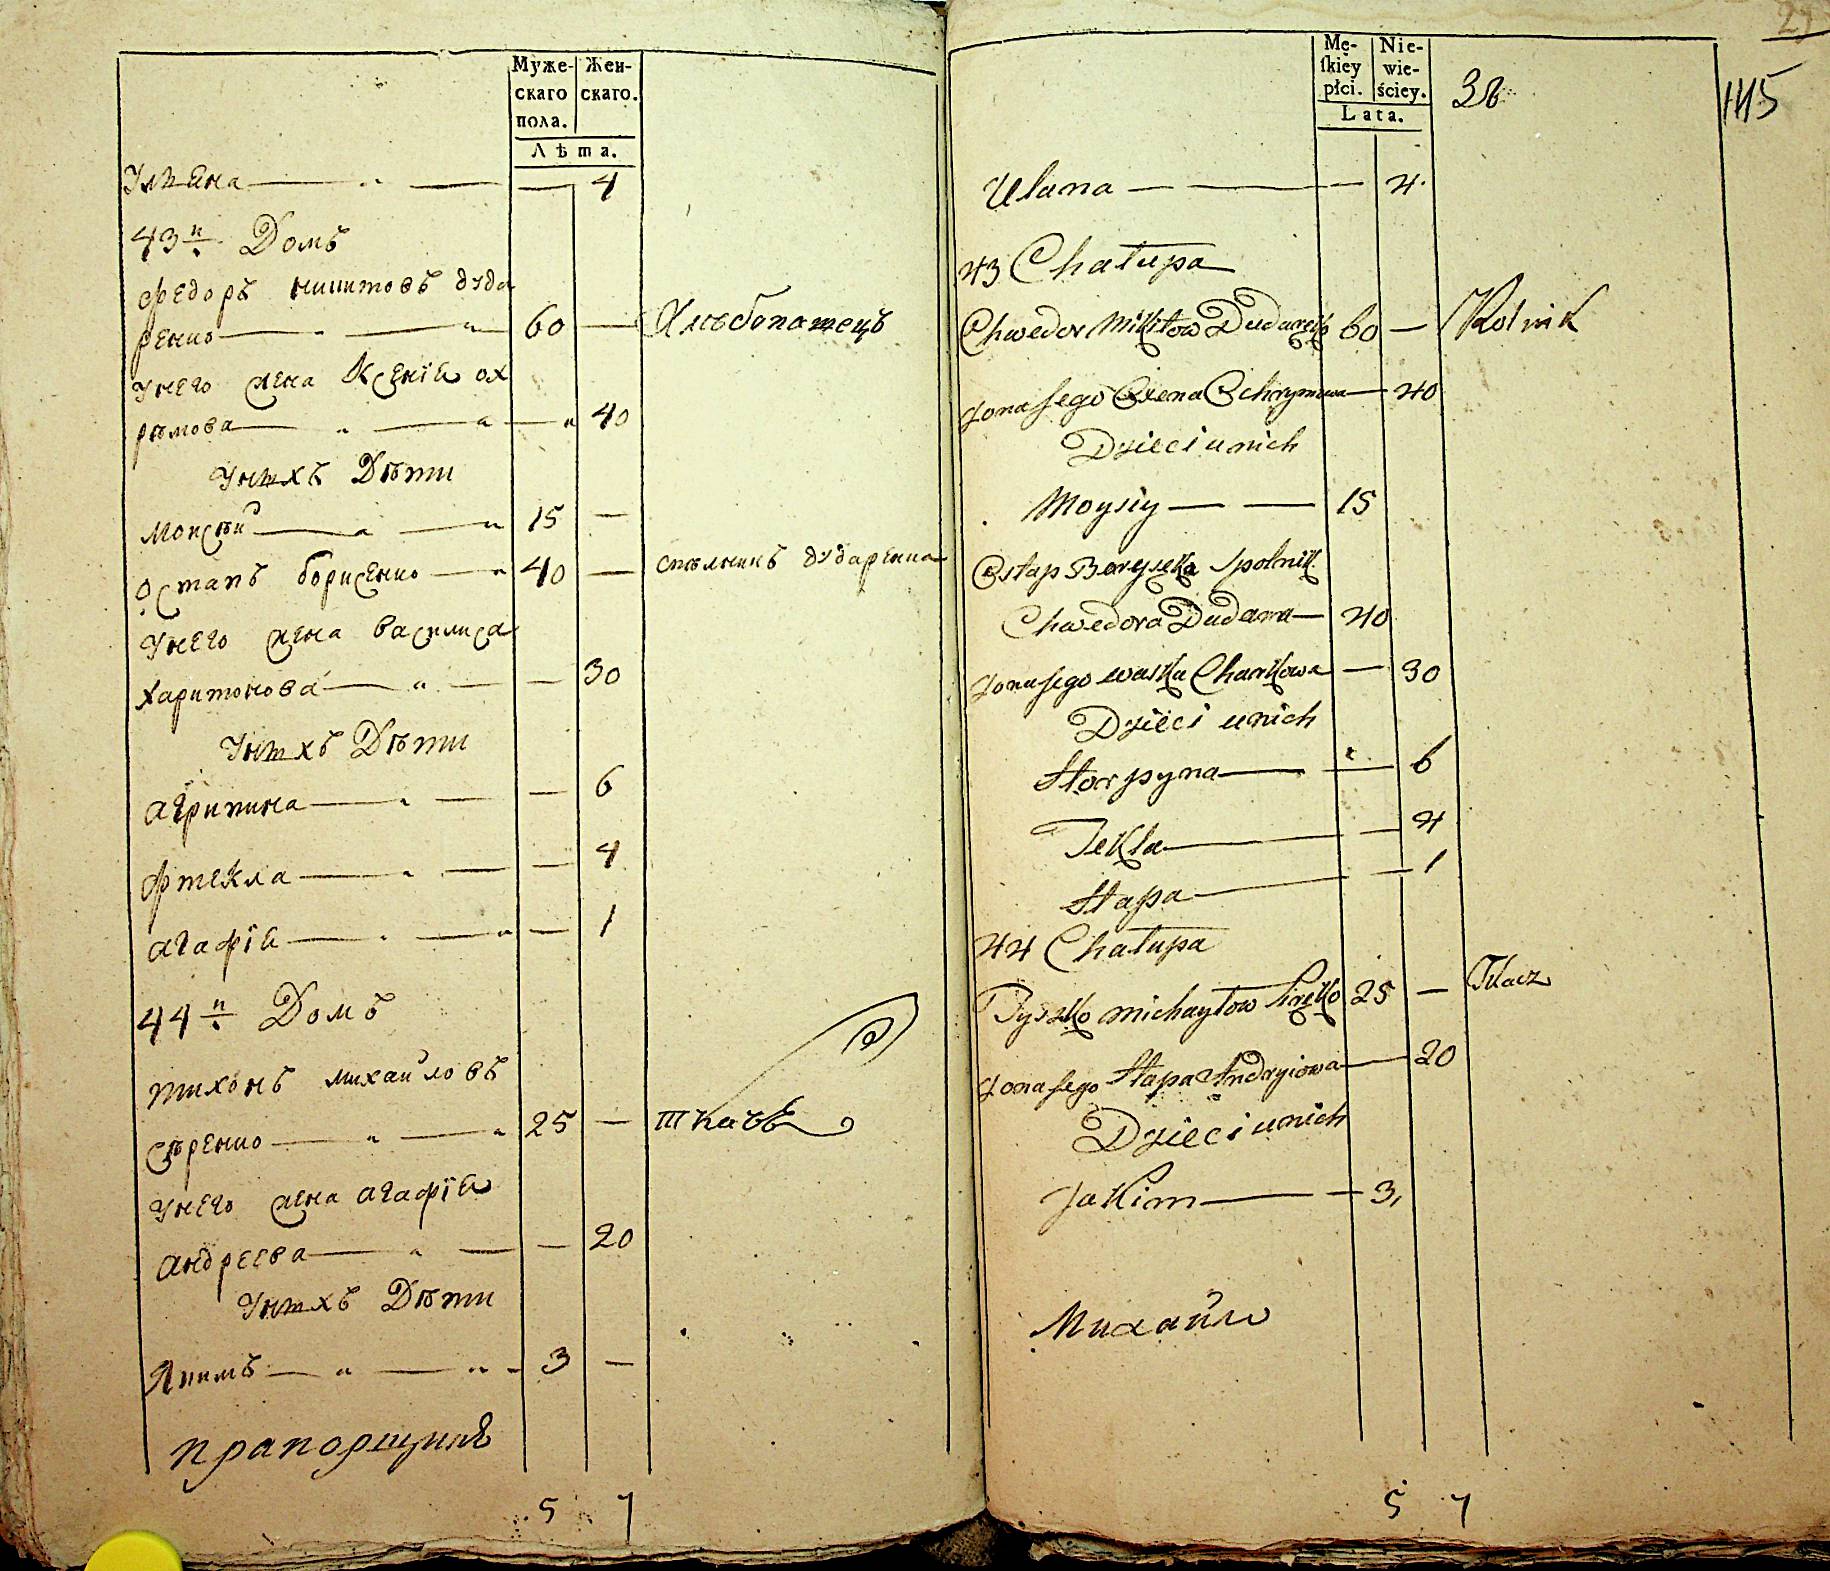 Муже-
скаго
пола.
Жен-
скаго.
Лѣта.
Ульяна — — — 4
43й Домъ
Федоръ никитовъ дуда
ренко — — 60 — Хлѣбопашецъ
Унего жена Ксенія ох
рѣмова — — — 40
Унихъ Дѣти
Моисѣй — — 15 —
Остапъ борисенко — 40 — спѣлникъ дударенка
Унего жена василиса
харитонова — — — 30
Унихъ Дѣти
агрипина — — — 6
фтекла — — — 4
агафія — — — 1
44й Домъ
тихонъ михайловъ
сѣренко — — 25 — ткачъ
Унего жена агафія
андреева — — — 20
Унихъ Дѣти
Якимъ — — 3 —
прапорщикъ
5 7
Mę-
skiey
płci.
Nie-
wie-
ściey.
Lata.
115
Ulana — — — 4.
43 Chałupa
Chwedor Mikitow Dudarenko 60 — Rolnik
Żona Jego Oxena Ochrymowa — 40
Dzieci u nich
Moysiy — — 15
Ostap Borysenko Spolnik
Chwedora Dudarra — 40
Żona Jego waska Charkowa — 30
Dzieci u nich
Horpyna — — 6
Tekla — — 4
Hapa — — 1
44 Chałupa
Tyszko michayłow Sirenko 25 — Tkacz
Żona Jego Hapa Andryiowa — 20
Dzieci u nich
Jakim — — 3,
Михайло
5 7